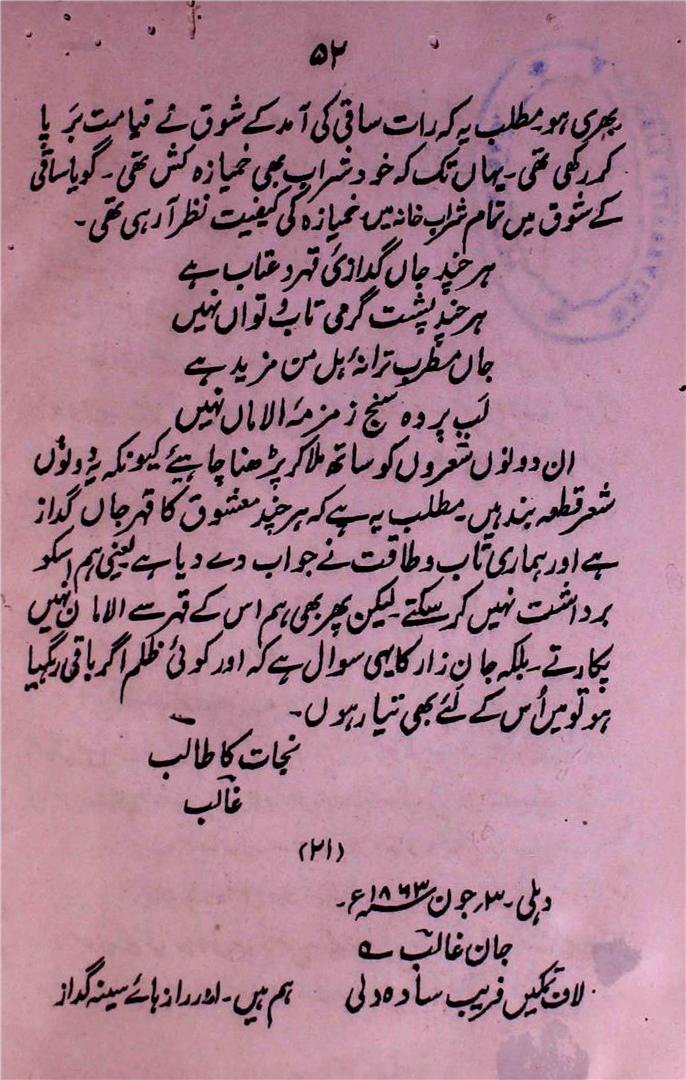 ۵۲
بھری ہو۔ مطلب یہ کہ رات ساقی کی آمد کے شوق نے قیامت برَ پا
کر رکھی تھی۔ یہاں تک کہ خود شراب بھی خمیازہ کش تھی۔ گویا ساقی
کے شوق میں تمام شراب خانہ میں خمیازہ کی کیفیت نظر آ رہی تھی۔
ہر خپد جاں گدازیٔ قہر و عتاب ہے
ہر خپد پشت گرمی تاب و تواں نہیں
جاں مطرب ترانۂ ہل من مزید ہے
لَب پردہ سنج زمزمۂ الاماں نہیں
ان دونوں شعروں کو ساتھ ملا کر پڑھنا چاہیئے کیونکہ یہ دونوں
شعر قطعہ بند ہیں۔ مطلب یہ ہے کہ ہر خپد معشوق کا قہر جاں گداز
ہے اور ہماری تاب و طاقت نے جواب دے دیا ہے یعنی ہم اسکو
برداشت نہیں کر سکتے۔ لیکن پھر بھی ہم اس کے قہر سے الامان نہیں
پکارتے۔ بلکہ جانِ زار کا یہی سوال ہے کہ اور کوئی ظلم اگر باقی رہگیا
ہو تو میں اُس کے لئے بھی تیار ہوں۔
نجات کا طالب
غالب
(۲۱)
دہلی۔ ۳؍ جون ۱۸۶۳ء۔
جان غالب
لاف تمکیں فریب سادہ دلی ہم ہیں۔ اور راز ہائے سینہ گداز